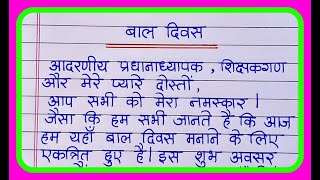 बाल दिवस
आदरणीय प्रधानाध्यापक , शिक्षकगण
और मेरे प्यारे दोस्तों,
आप सभी को मेरा नमस्कार ।
जैसा कि हम सभी जानते है कि आज
हम यहाँ बाल दिवस मनाने के लिए
एकत्रित हुए है। इस शुभ अवसर